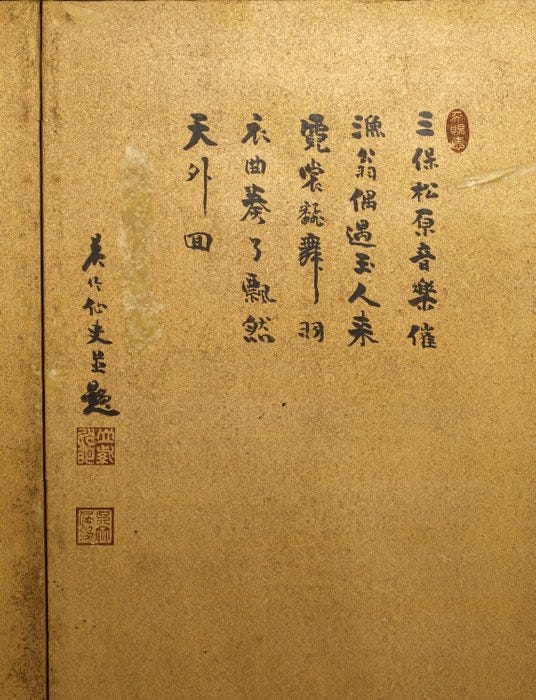 三保松原音樂催
漁翁偶遇玉人来
霓裳翻舞羽
衣曲奏了飄然
天外回
仙史並題